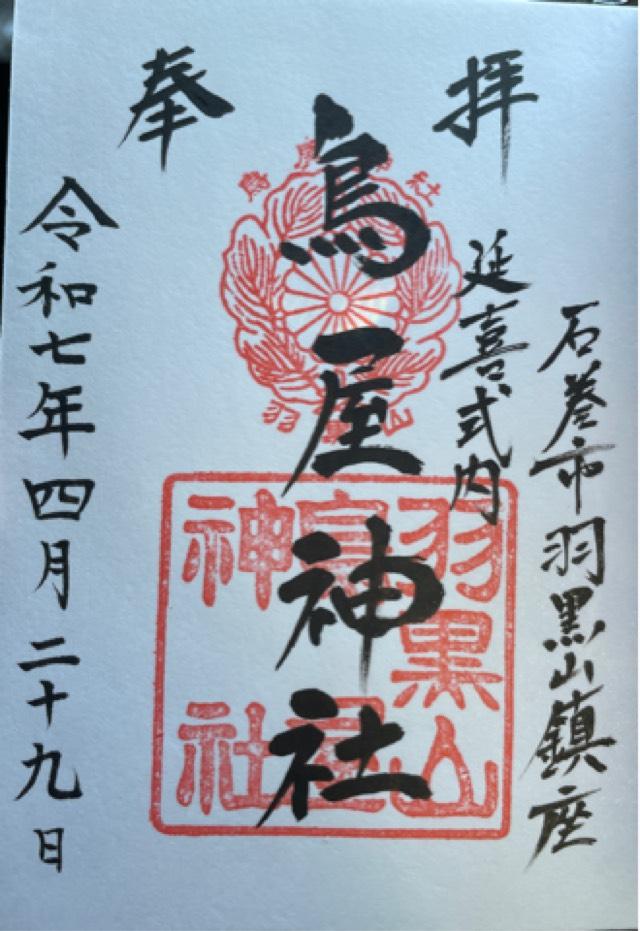 奉拝
石巻市羽黒山鎮座
延喜式内
鳥屋神社
令和七年四月二十九日
羽黒山
鳥屋
神社